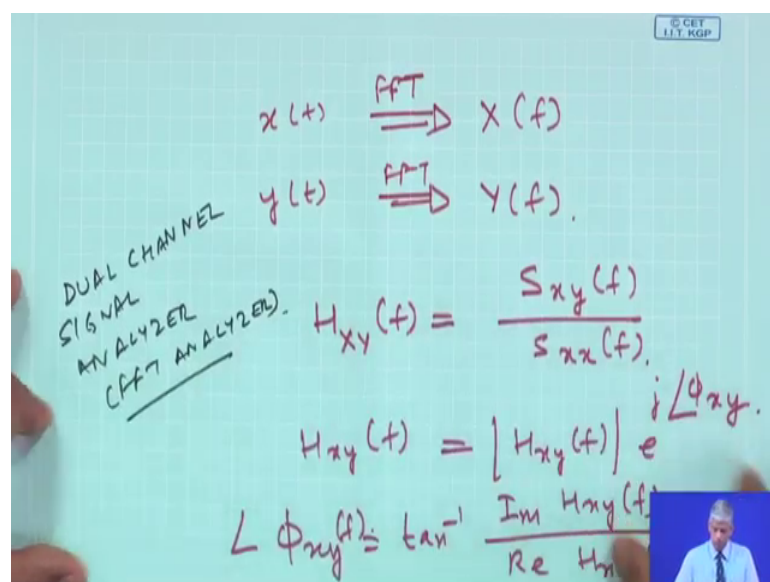 © CET
I.I.T. KGP
x(t) FFT ⇒ X(f)
y(t) FFT ⇒ Y(f).
DUAL CHANNEL
SIGNAL
ANALYZER
(FFT ANALYZER).
H_XY(f) = S_xy(f) / S_xx(f).
H_xy(f) = |H_xy(f)| e^j∠Φ_xy.
∠ϕ_xy(f) = tan⁻¹ Im H_xy(f) / Re H